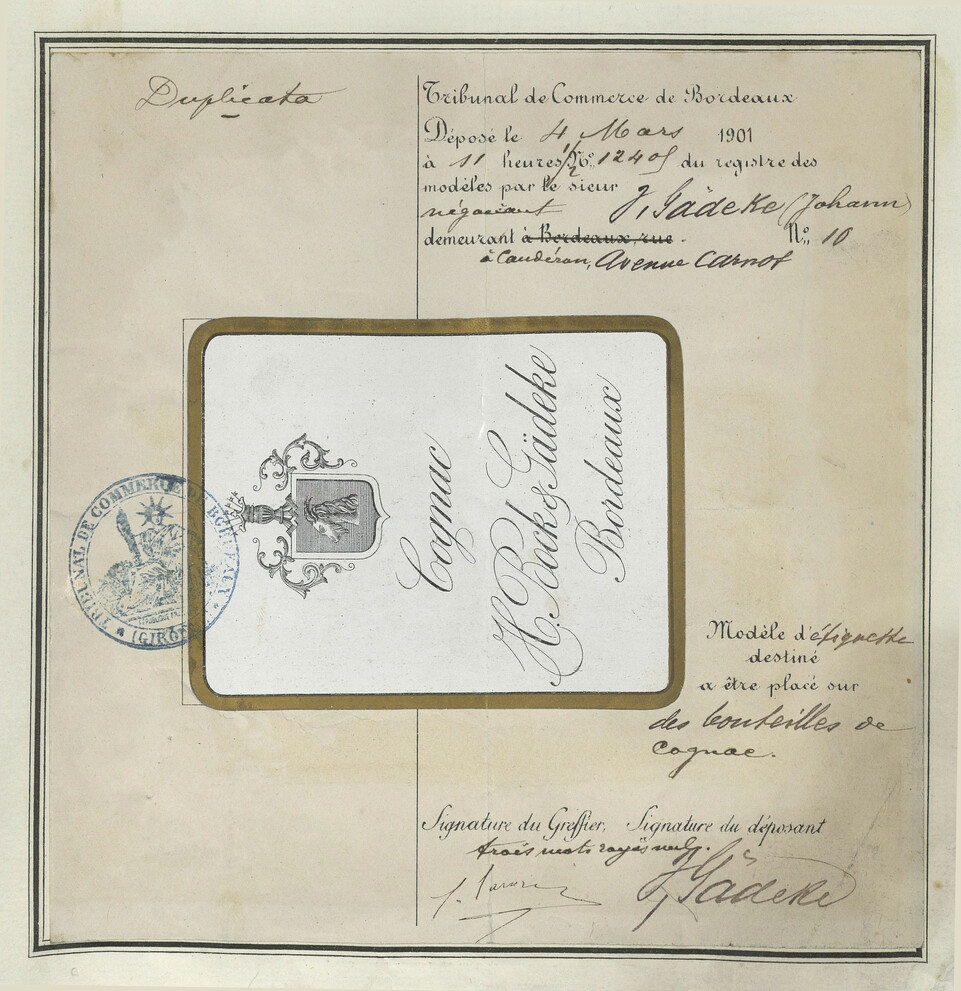 Duplicata
Tribunal de Commerce de Bordeaux
Déposé le 4 Mars 1901
à 11 heures 1/2 No. 12401 du registre des
modèles par le sieur
négociant J. Gädeke (Johann)
demeurant à Bordeaux, rue No. 10
à Caudéran, Avenue Carnot
Cognac
H. Bock & Gädeke
Bordeaux
TRIBUNAL DE COMMERCE DE BORDEAUX
(GIRONDE)
Modèle d'étiquette
destiné
a être placé sur
des bouteilles de
cognac.
Signature du Greffier, Signature du déposant
trois mots rayés nuls.
J. Gädeke